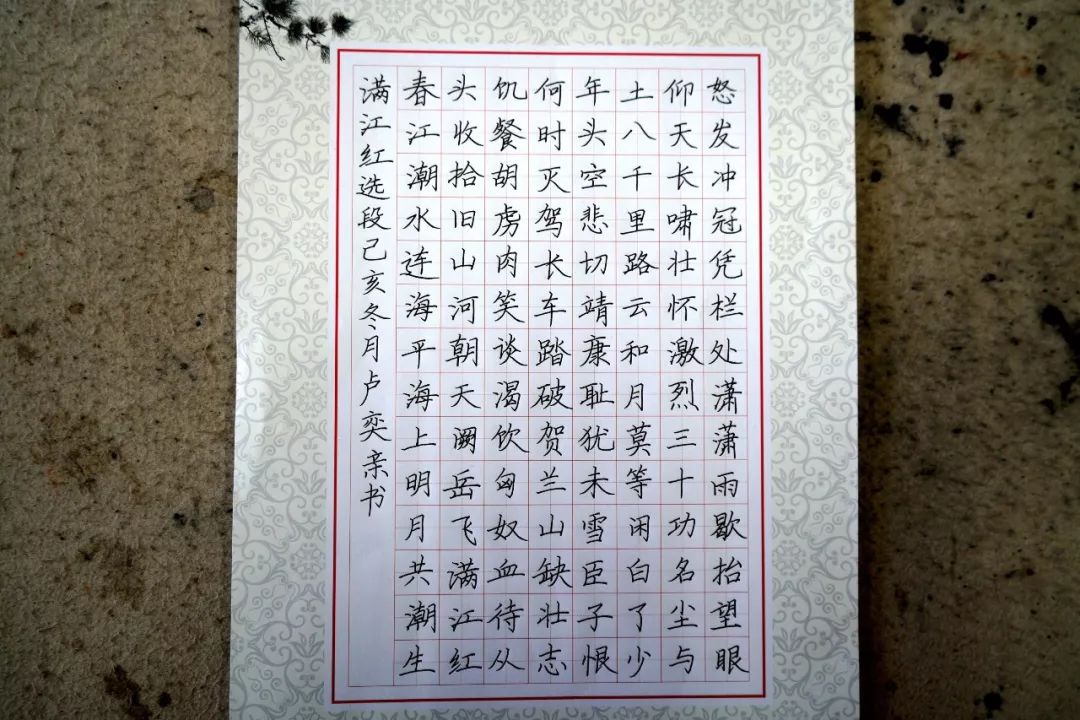 怒发冲冠凭栏处潇潇雨歇抬望眼
仰天长啸壮怀激烈三十功名尘与
土八千里路云和月莫等闲白了少
年头空悲切靖康耻犹未雪臣子恨
何时灭驾长车踏破贺兰山缺壮志
饥餐胡虏肉笑谈渴饮匈奴血待从
头收拾旧山河朝天阙岳飞满江红
春江潮水连海平海上明月共潮生
满江红选段己亥冬月卢奕亲书